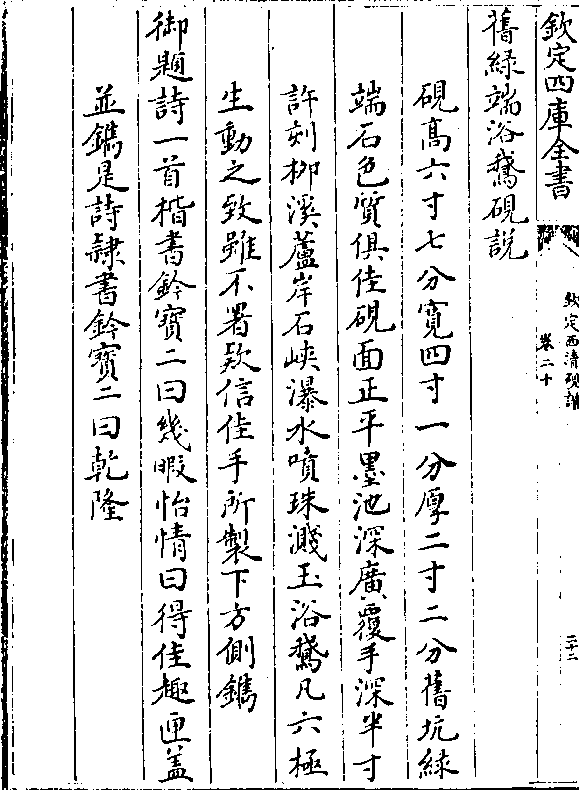 欽定四庫全書
欽定西清硯譜
卷二十
二十二
舊緑端浴鵞硯説
硯髙六寸七分寛四寸一分厚二寸二分舊坑緑
端石色質俱佳硯面正平墨池深廣覆手深半寸
許刻柳溪蘆岸石峽瀑水噴珠濺玉浴鵞凡六極
生動之致雖不署款信佳手所製下方側鐫
御題詩一首楷書鈐寶二曰幾暇怡情曰得佳趣匣蓋
並鐫是詩隷書鈐寶二曰乾隆